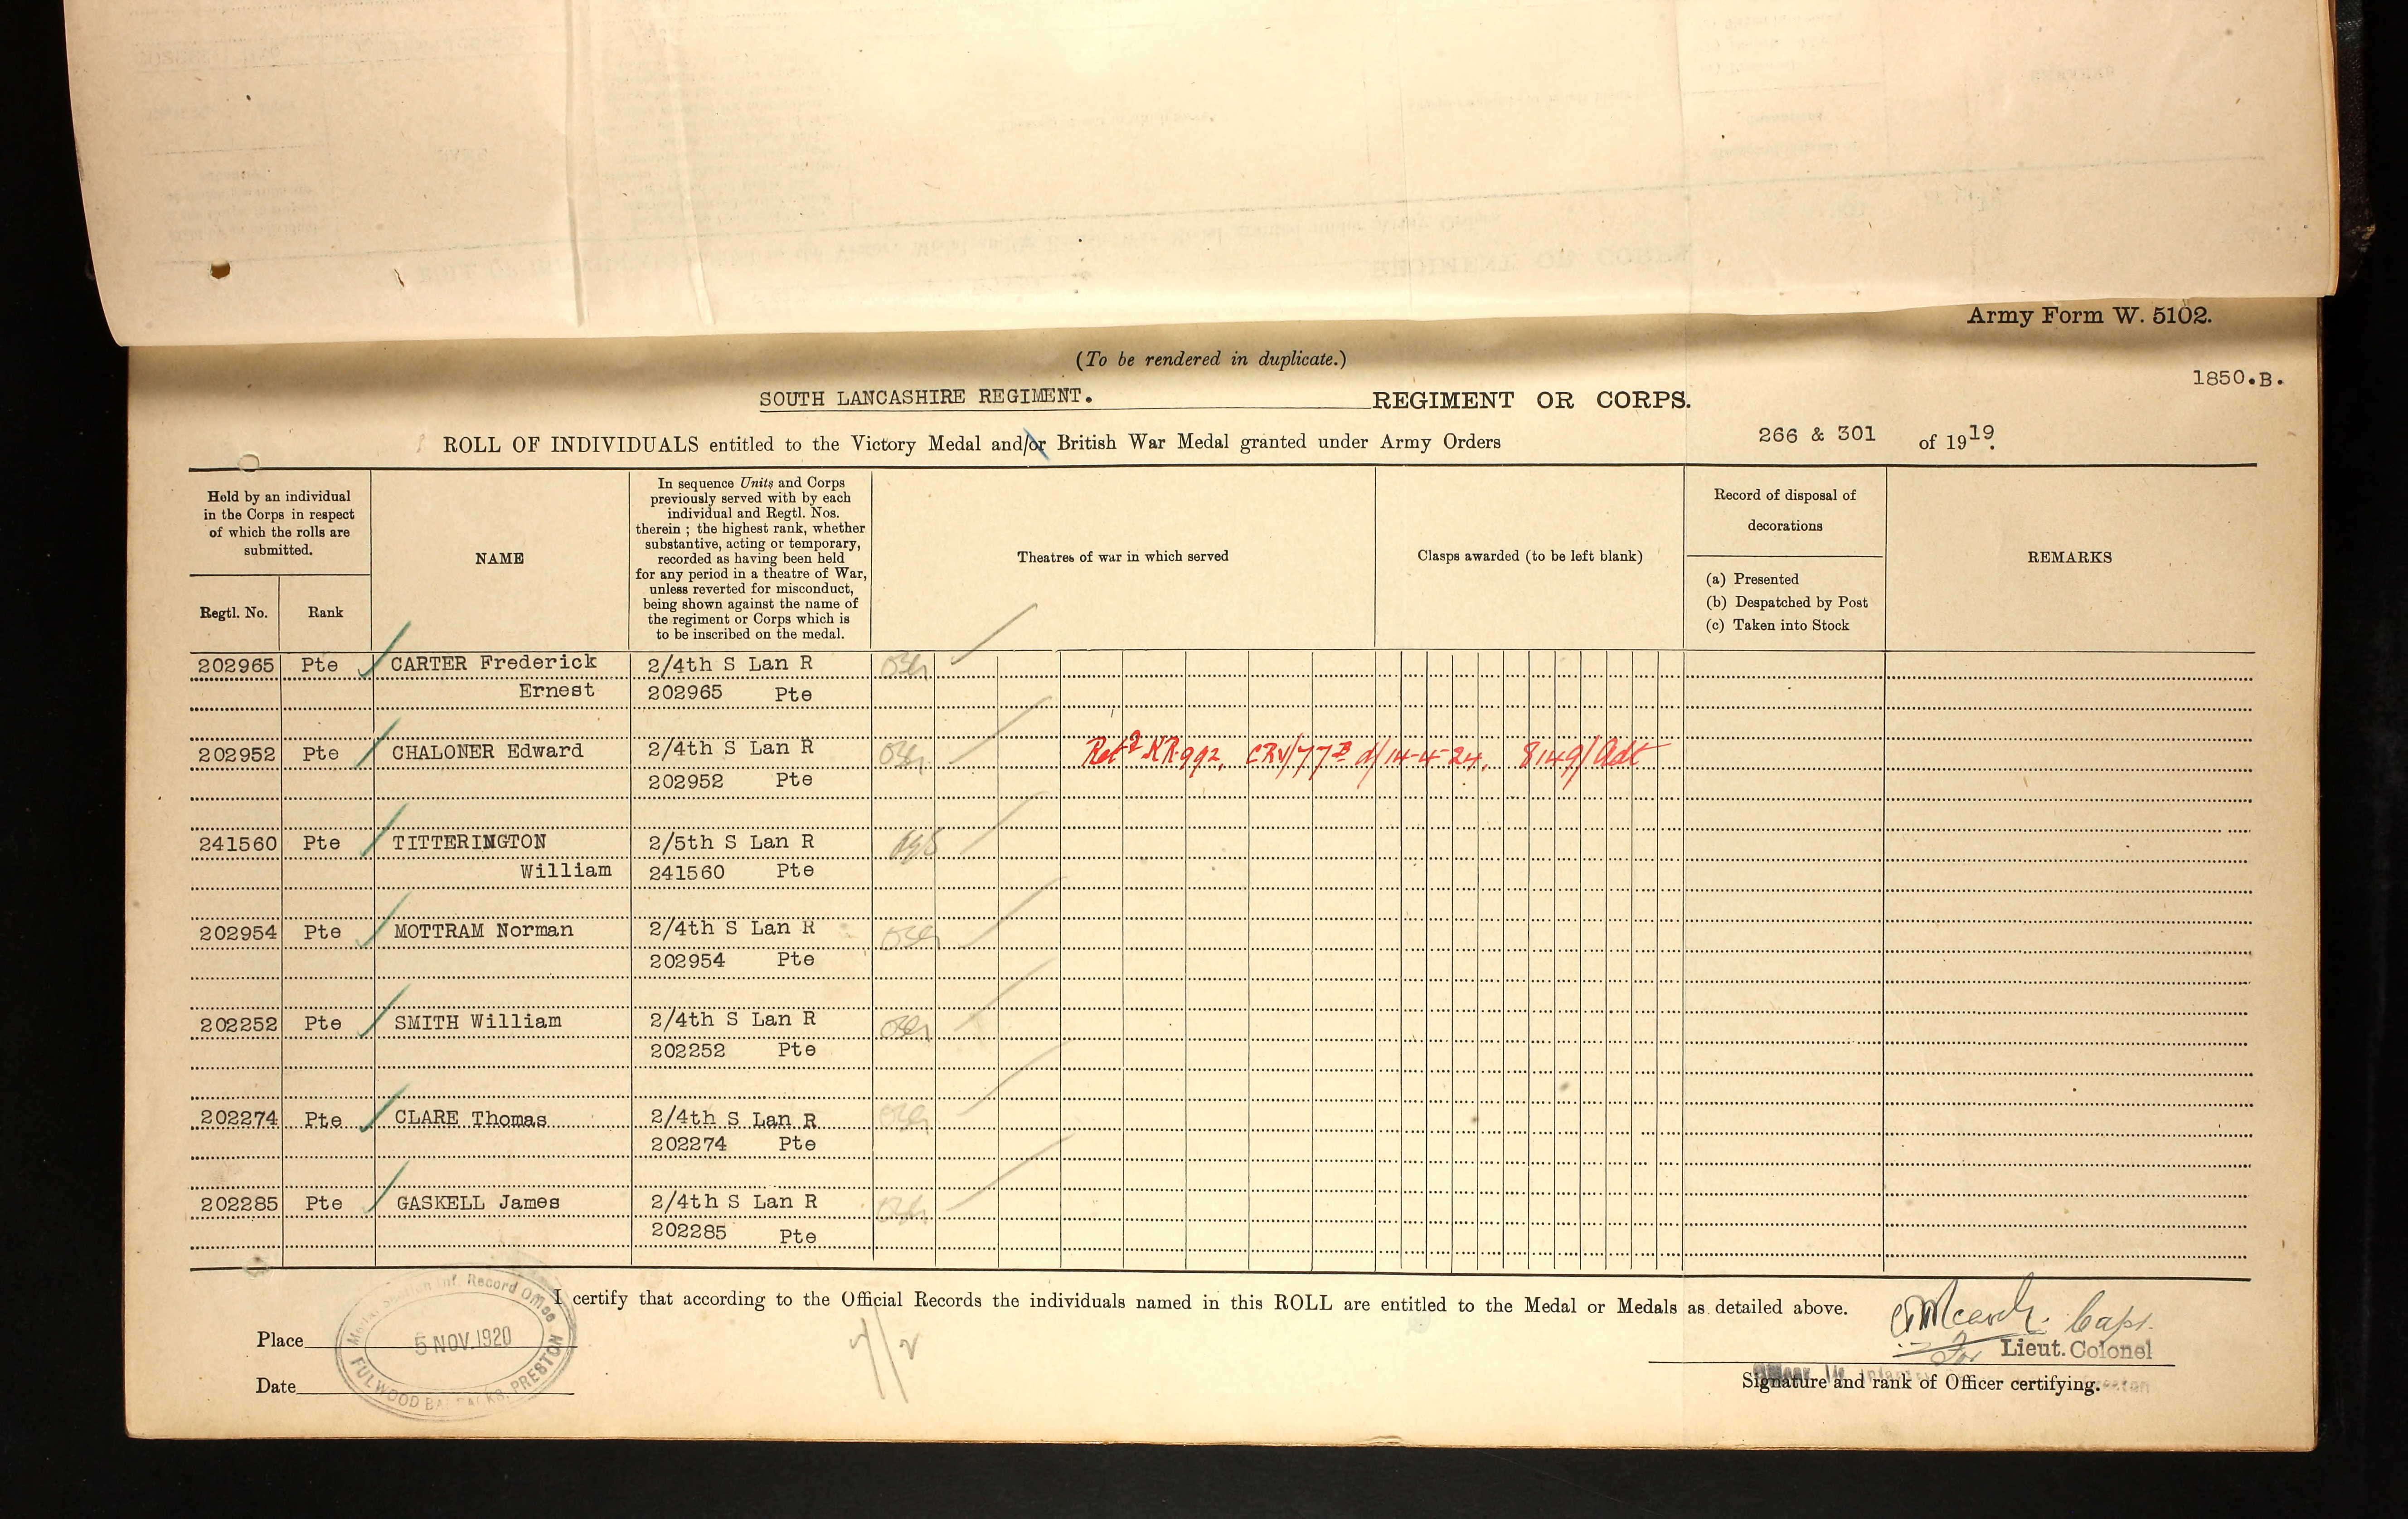 Army Form W. 5102.
(To be rendered in duplicate.)
1850.B.
SOUTH LANCASHIRE REGIMENT. REGIMENT OR CORPS.
ROLL OF INDIVIDUALS entitled to the Victory Medal and/or British War Medal granted under Army Orders 266 & 301 of 1919.
Held by an individual
in the Corps in respect
of which the rolls are
submitted.
Regtl. No.
Rank
NAME
In sequence Units and Corps
previously served with by each
individual and Regtl. Nos.
therein ; the highest rank, whether
substantive, acting or temporary,
recorded as having been held
for any period in a theatre of War,
unless reverted for misconduct,
being shown against the name of
the regiment or Corps which is
to be inscribed on the medal.
Theatres of war in which served
Clasps awarded (to be left blank)
Record of disposal of
decorations
(a) Presented
(b) Despatched by Post
(c) Taken into Stock
REMARKS
202965 Pte CARTER Frederick 2/4th S Lan R
Ernest 202965 Pte
202952 Pte CHALONER Edward 2/4th S Lan R CRV/77B d/14-4-24. 8149/Adt
202952 Pte
241560 Pte TITTERINGTON 2/5th S Lan R
William 241560 Pte
202954 Pte MOTTRAM Norman 2/4th S Lan R
202954 Pte
202252 Pte SMITH William 2/4th S Lan R
202252 Pte
202274 Pte CLARE Thomas 2/4th S Lan R
202274 Pte
202285 Pte GASKELL James 2/4th S Lan R
202285 Pte
I certify that according to the Official Records the individuals named in this ROLL are entitled to the Medal or Medals as detailed above.
Capt.
Place
Record Office
5 NOV. 1920
FULWOOD BARRACKS, PRESTON
for Lieut. Colonel
Date
Signature and rank of Officer certifying.